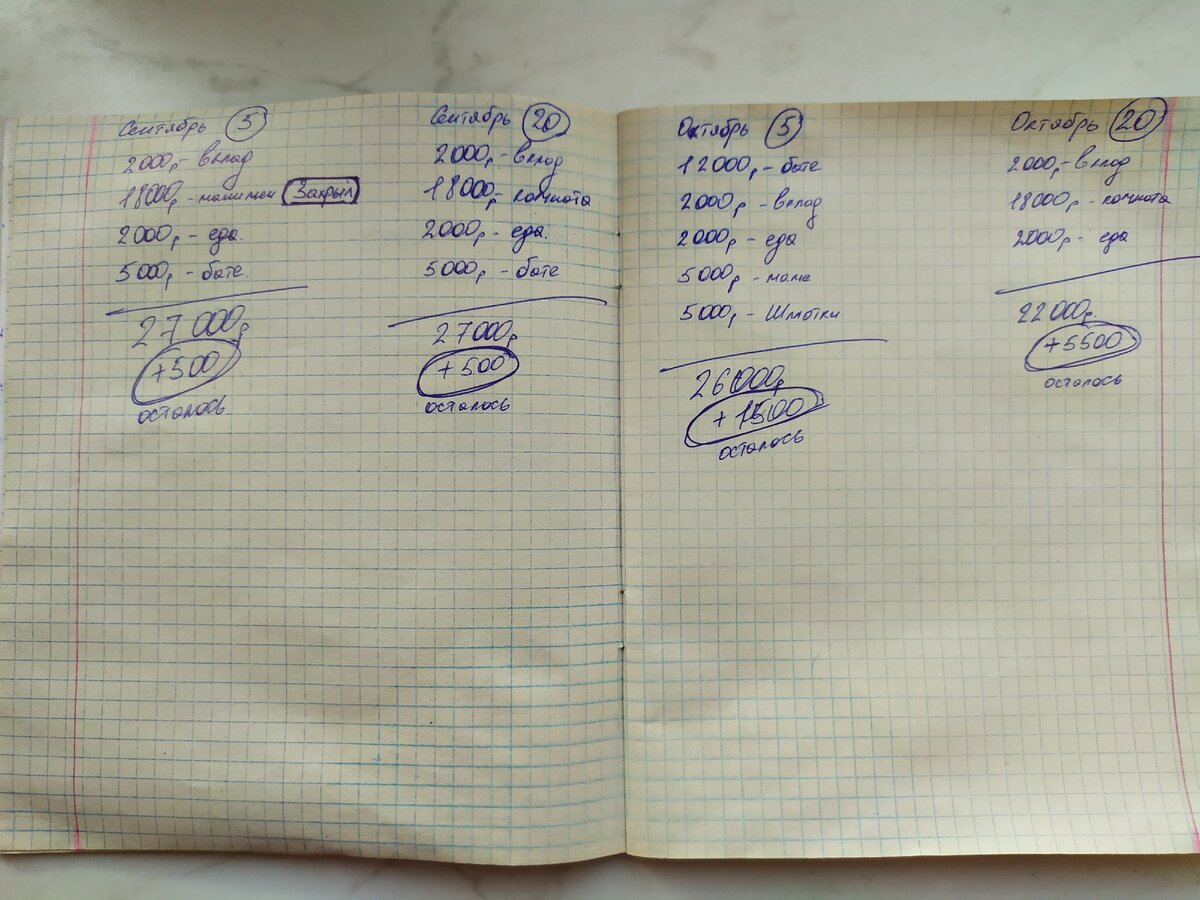 Сентябрь 5
2000р - вклад
18000р - манимен Закрыл
2000р - еда.
5000р - бате.
27000р
+500
осталось
Сентябрь 20
2000р - вклад
18000р - комната
2000р - еда.
5000р - бате
27000р
+500
осталось
Октябрь 5
12000р - бате
2000р - вклад
2000р - еда
5000р - маме
5000р - Шмотки
26000р
+1500
осталось
Октябрь 20
2000р - вклад
18000р - комната
2000р - еда
22000р.
+5500
осталось